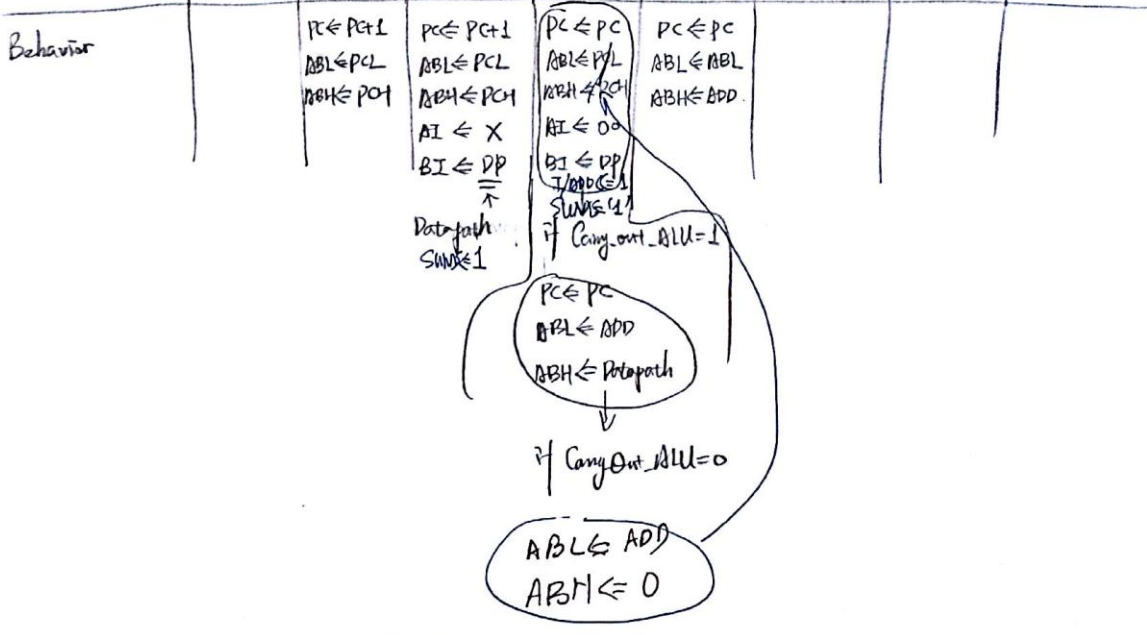 Behavior
PC⇐PC+1
ABL⇐PCL
ABH⇐PCH
PC⇐ PC+1
ABL⇐ PCL
ABH⇐ PCH
AI ⇐ X
BI ⇐ DP
Datapath
SUMS⇐1
PC⇐PC
ABL⇐PCL
ABH⇐PCH
AI⇐00
BI⇐DP
I/ADDC⇐1
SUMS⇐'1'
if Carry_out_ALU=1
PC⇐PC
ABL⇐ ADD
ABH⇐Datapath
if Carry Out_ALU=0
ABL⇐ ADD
ABH⇐ 0
PC⇐PC
ABL⇐ABL
ABH⇐ADD.